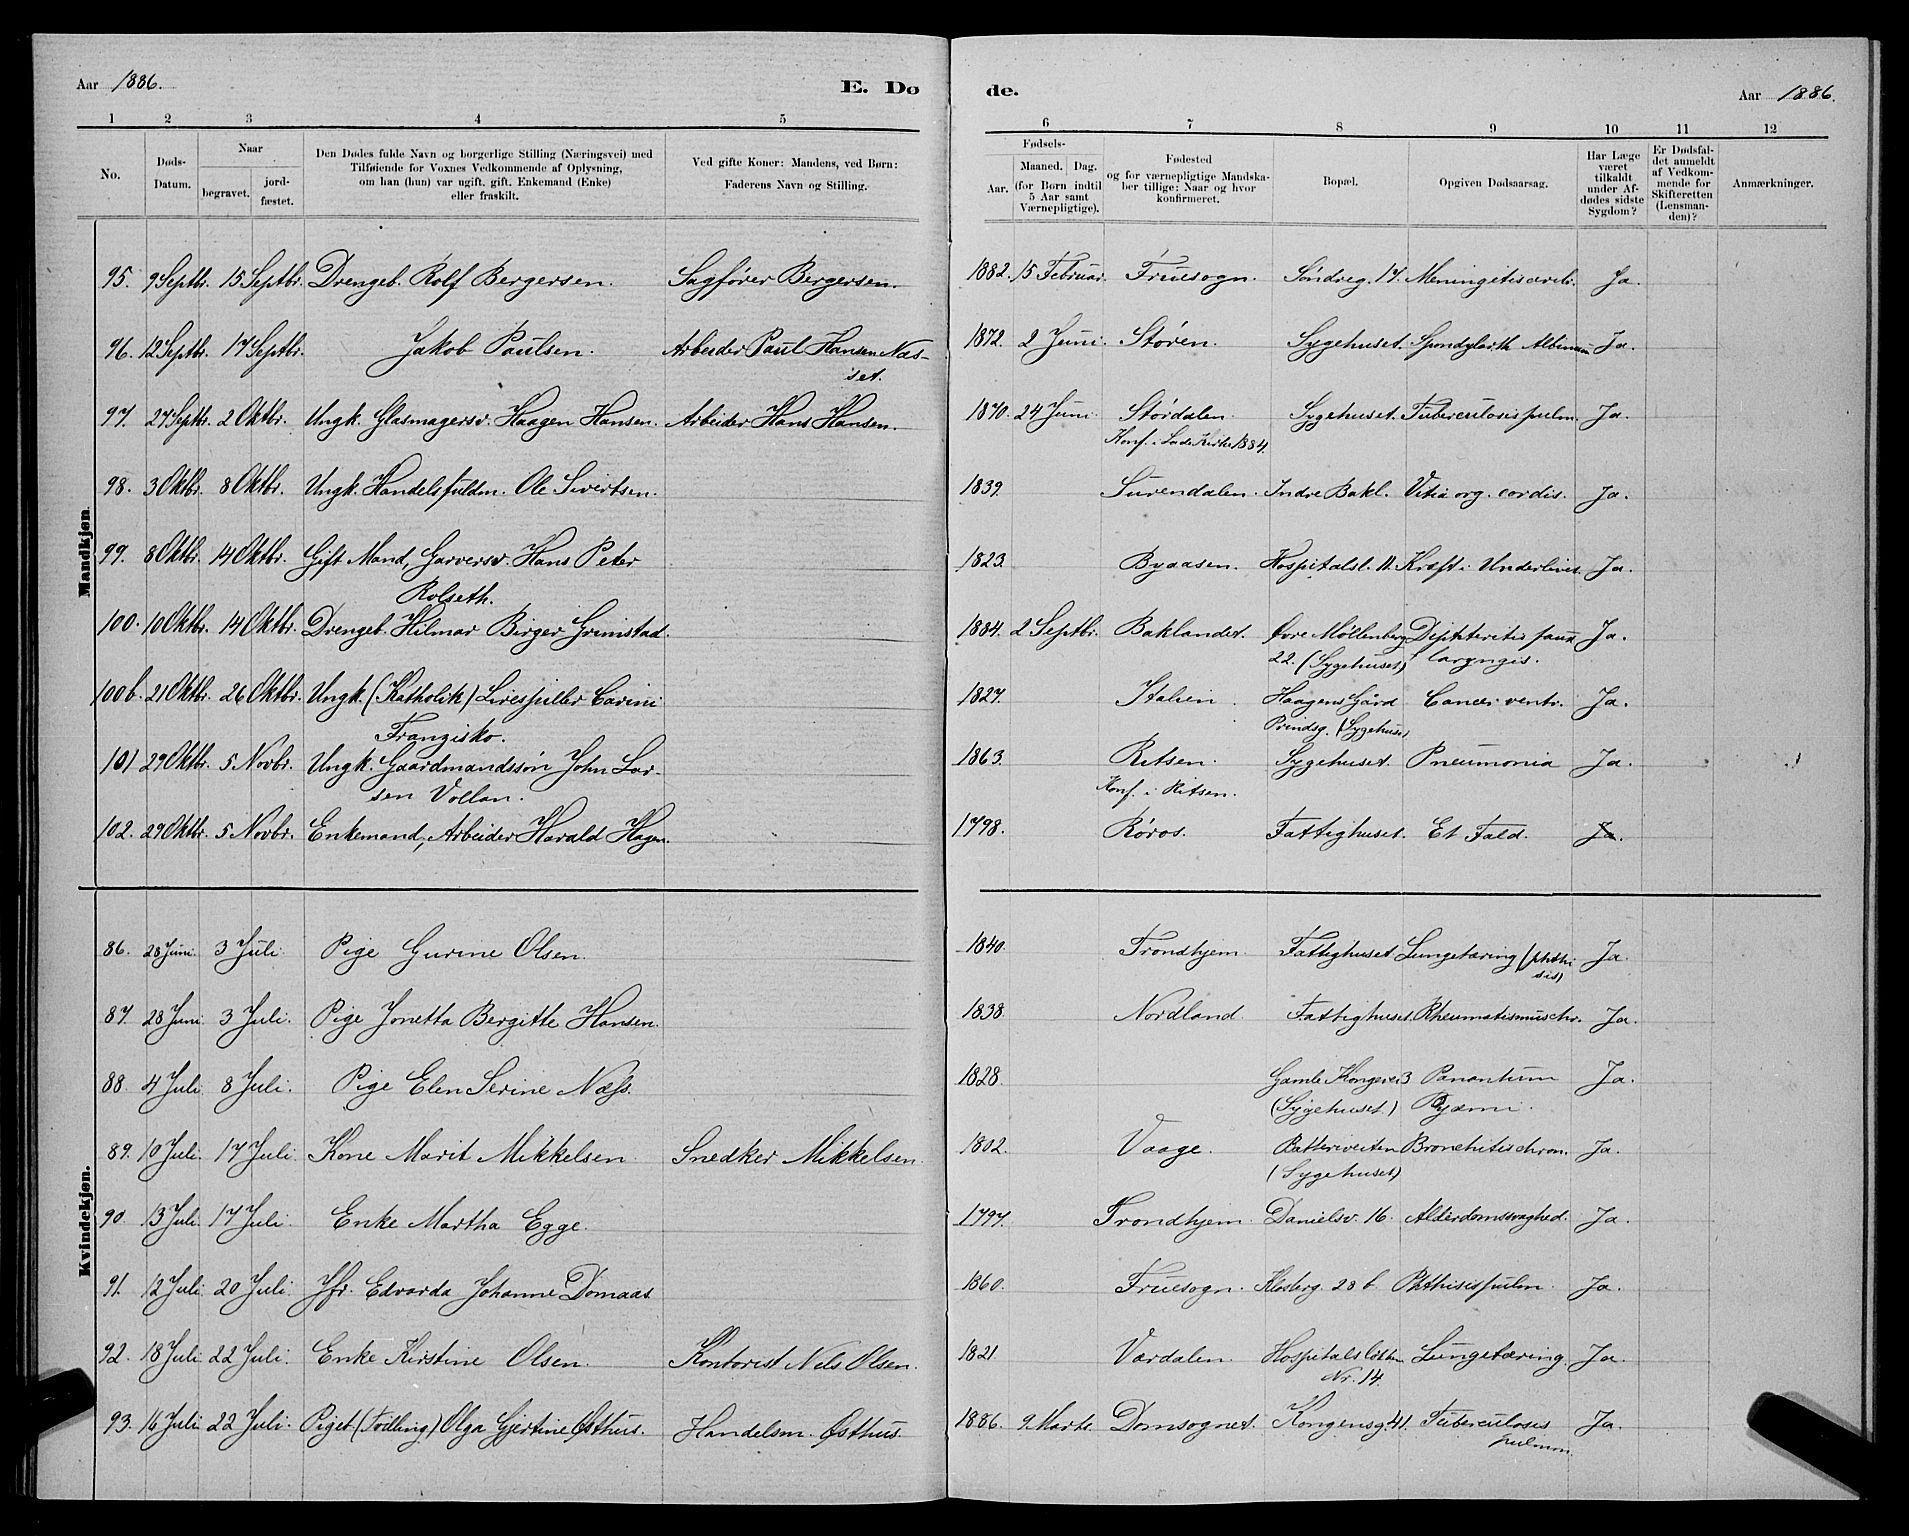 Aar 1886. E. Dø
1 2 3 4 5
No. Døds-Datum. Naar begravet. jordfæstet. Den Dødes fulde Navn og borgerlige Stilling (Næringsvei) med Tilføiende for Voxnes Vedkommende af Oplysning, om han (hun) var ugift, gift, Enkemand (Enke) eller fraskilt. Ved gifte Koner: Mandens, ved Børn: Faderens Navn og Stilling.
Mandkjøn.
95. 9 Septbr. 15 Septbr. Drengeb. Rolf Bergersen. Sagfører Bergersen.
96. 12 Septbr. 17 Septbr. Jakob Paulsen. Arbeider Paul Hansen Næs-
set.
97. 27 Septbr. 2 Oktbr. Ungk. Glasmagersv. Haagen Hansen. Arbeider Hans Hansen.
98. 3 Oktbr. 8 Oktbr. Ungk. Handelsfuldm. Ole Sivertsen.
99. 8 Oktbr. 14 Oktbr. Gift Mand, Garversv. Hans Peter
Rolseth.
100. 10 Oktbr. 14 Oktbr. Drengeb. Hilmar Birger Grimstad.
100b. 21 Oktbr. 26 Oktbr. Ungk. (Katholik) Lirespiller Carini
Franzisko.
101 29 Oktbr. 5 Novbr. Ungk. Gaardmandssøn John Lar-
sen Vollan.
102. 29 Oktbr. 5 Novbr. Enkemand, Arbeider Harald Hagen.
Kvindekjøn.
86. 28 Juni. 3 Juli. Pige Gurine Olsen.
87. 28 Juni. 3 Juli. Pige Jonetta Bergitte Hansen.
88. 4 Juli 8 Juli. Pige Elen Serine Næss.
89. 10 Juli. 17 Juli. Kone Marit Mikkelsen. Snedker Mikkelsen.
90. 13 Juli. 17 Juli. Enke Martha Egge.
91. 12 Juli 20 Juli. Jfr. Edvarda Johanne Domaas.
92. 18 Juli 22 Juli. Enke Kirstine Olsen. Kontorist Nels Olsen.
93. 16 Juli 22 Juli. Pigeb. (Tvilling) Olga Gjertine Østhus. Handelsm. Østhus.
de. Aar 1886.
6 7 8 9 10 11 12
Fødsels- Aar. Maaned. Dag. (for Børn indtil 5 Aar samt Værnepligtige). Fødested og for værnepligtige Mandskaber tillige: Naar og hvor konfirmeret. Bopæl. Opgiven Dødsaarsag. Har Læge været tilkaldt under Afdødes sidste Sygdom? Er Dødsfaldet anmeldt af Vedkommende for Skifteretten (Lensmanden)? Anmærkninger.
1882. 15 Februar. Fruesogn. Søndreg. 17. Meningetis cerebr. Ja.
1872. 2 Juni. Støren. Sygehuset. Ja.
1870. 24 Juni. Størdalen. Sygehuset. Tuberculosis pulm. Ja.
Konf. i Lade Kirke 1884.
1839. Surendalen. Indre Bakl. Vitia org. cordis. Ja.
1823. Byaasen. Hospitalsl. 11. Kræft i Underlivet. Ja.
1884. 2 Septbr. Baklandet. Øvre Møllenberg Diphteritis fauc Ja.
22. (Sygehuset) laryngis.
1827. Italien. Haagens Gård Cancer ventr. Ja.
Prindsg. (Sygehuset
1863. Ritsen. Sygehuset. Pneumonia Ja.
Konf. i Ritsen.
1798. Røros. Fattighuset. Et Fald. Ja.
1840. Trondhjem. Fattighuset Lungetæring (phthi Ja.
sis)
1838. Nordland. Fattighuset. Rheumatismus chr. Ja.
1828. Gamle Kongevei 3 Panantium Ja.
(Sygehuset.) Pyæmi.
1802. Vaage. Batteriveiten Bronchitis chron. Ja.
(Sygehuset)
1797. Trondhjem. Danielsv. 16. Alderdomssvaghed. Ja.
1860. Fruesogn. Klosterg. 28 b. Phthisis pulm. Ja.
1821. Værdalen. Hospitalsløkken Lungetæring. Ja.
Nr. 14.
1886. 9 Marts. Domsognet. Kongensg. 41. Tuberculosis Ja.
pulmon.